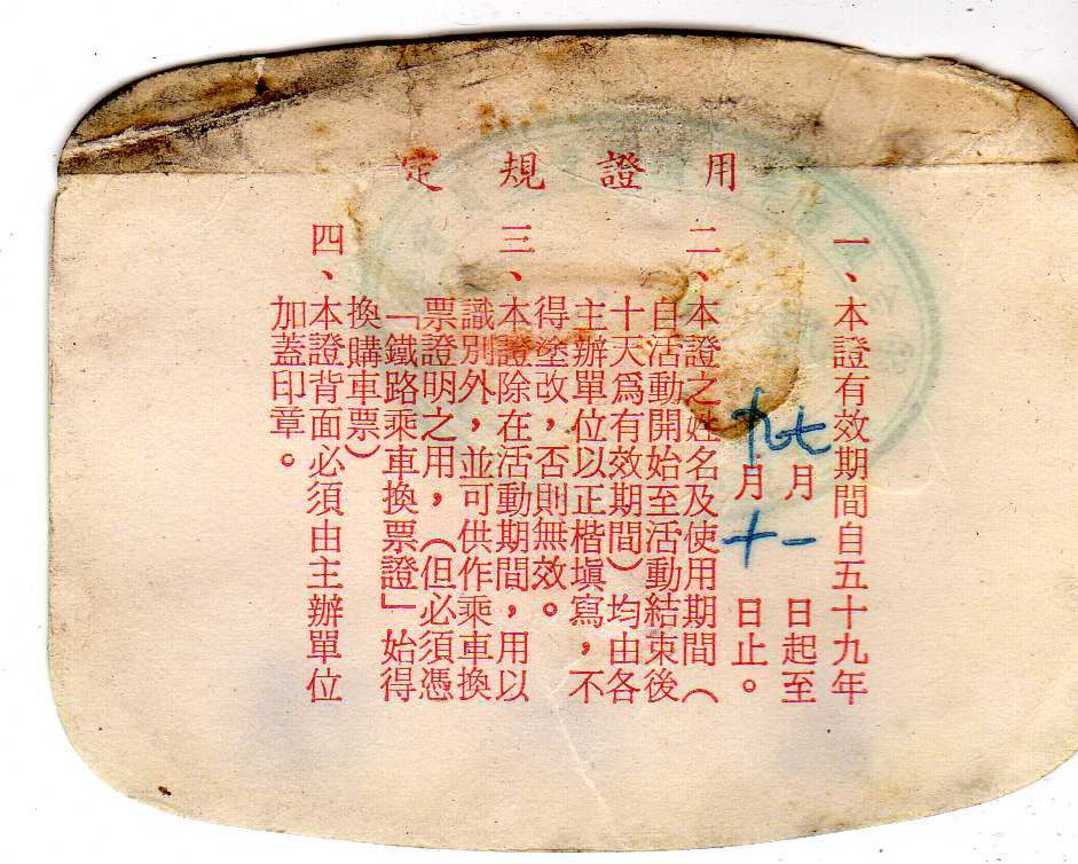 用證規定
一、本證有效期間自五十九年
七月一日起至
九月十日止。
二、本證之姓名及使用期間（
自活動開始至活動結束後
十天爲有效期間）均由各
主辦單位以正楷塡寫，不
得塗改，否則無效。
三、本證除在活動期間，用以
識別外，並可供作乘車換
票證明之用，（但必須憑
「鐵路乘車換票證」始得
換購車票）
四、本證背面必須由主辦單位
加蓋印章。